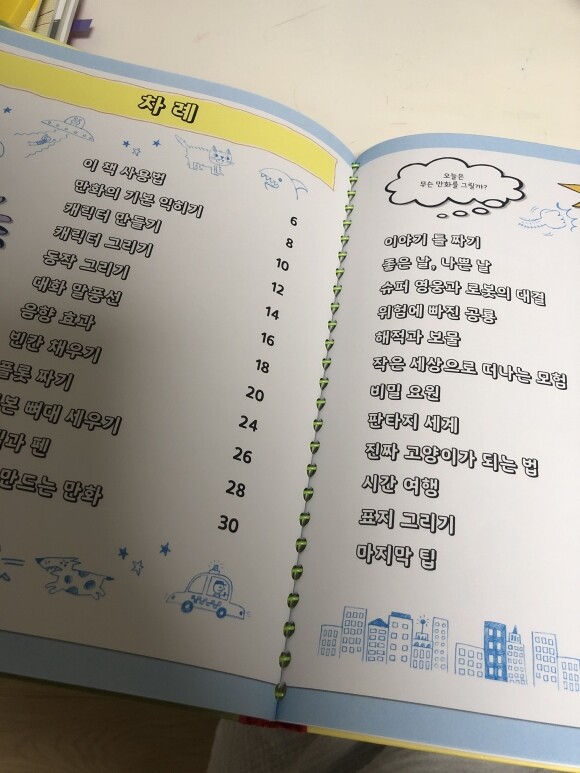 차 례
이 책 사용법
6
만화의 기본 익히기
8
캐릭터 만들기
10
캐릭터 그리기
12
동작 그리기
14
대화 말풍선
16
음향 효과
18
빈칸 채우기
20
플롯 짜기
24
뼈대 세우기
26
펜
28
만드는 만화
30
오늘은
무슨 만화를 그릴까?
이야기 틀 짜기
좋은 날, 나쁜 날
슈퍼 영웅과 로봇의 대결
위험에 빠진 공룡
해적과 보물
작은 세상으로 떠나는 모험
비밀 요원
판타지 세계
진짜 고양이가 되는 법
시간 여행
표지 그리기
마지막 팁